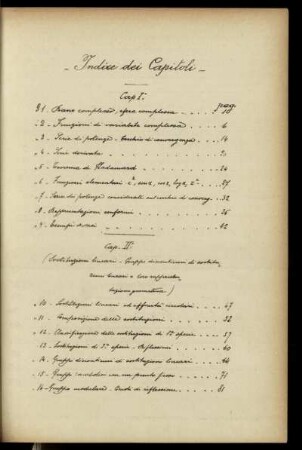 Indice dei Capitoli
Cap I.
pag.
§ 1. Piano complesso, sfera complessa 1
" 2. Funzioni di variabile complessa 6
" 3. Serie di potenze. Cerchio di convergenza 14
" 4. Serie derivate
" 5. Teorema di Hadamard
" 6. Funzioni elementari
" 7. Serie di potenze considerate sul cerchio di converg. 32
" 8. Rappresentazioni conformi 36
" 9. Esempi 42
Cap. II.
(Sostituzioni lineari. Gruppi discontinui di sostitu-
zioni lineari e loro rappresen-
tazione geometrica)
" 10. Sostituzioni lineari ed affinità circolari 47
" 11. Composizione delle sostituzioni 52
" 12. Classificazione delle sostituzioni di 1ª specie 57
" 13. Sostituzioni di 2ª specie. Riflessioni 60
" 14. Gruppi discontinui di sostituzioni lineari 66
" 15. Gruppi con un punto fisso 71
" 16. Gruppo modulare. Gruppi di riflessioni 81